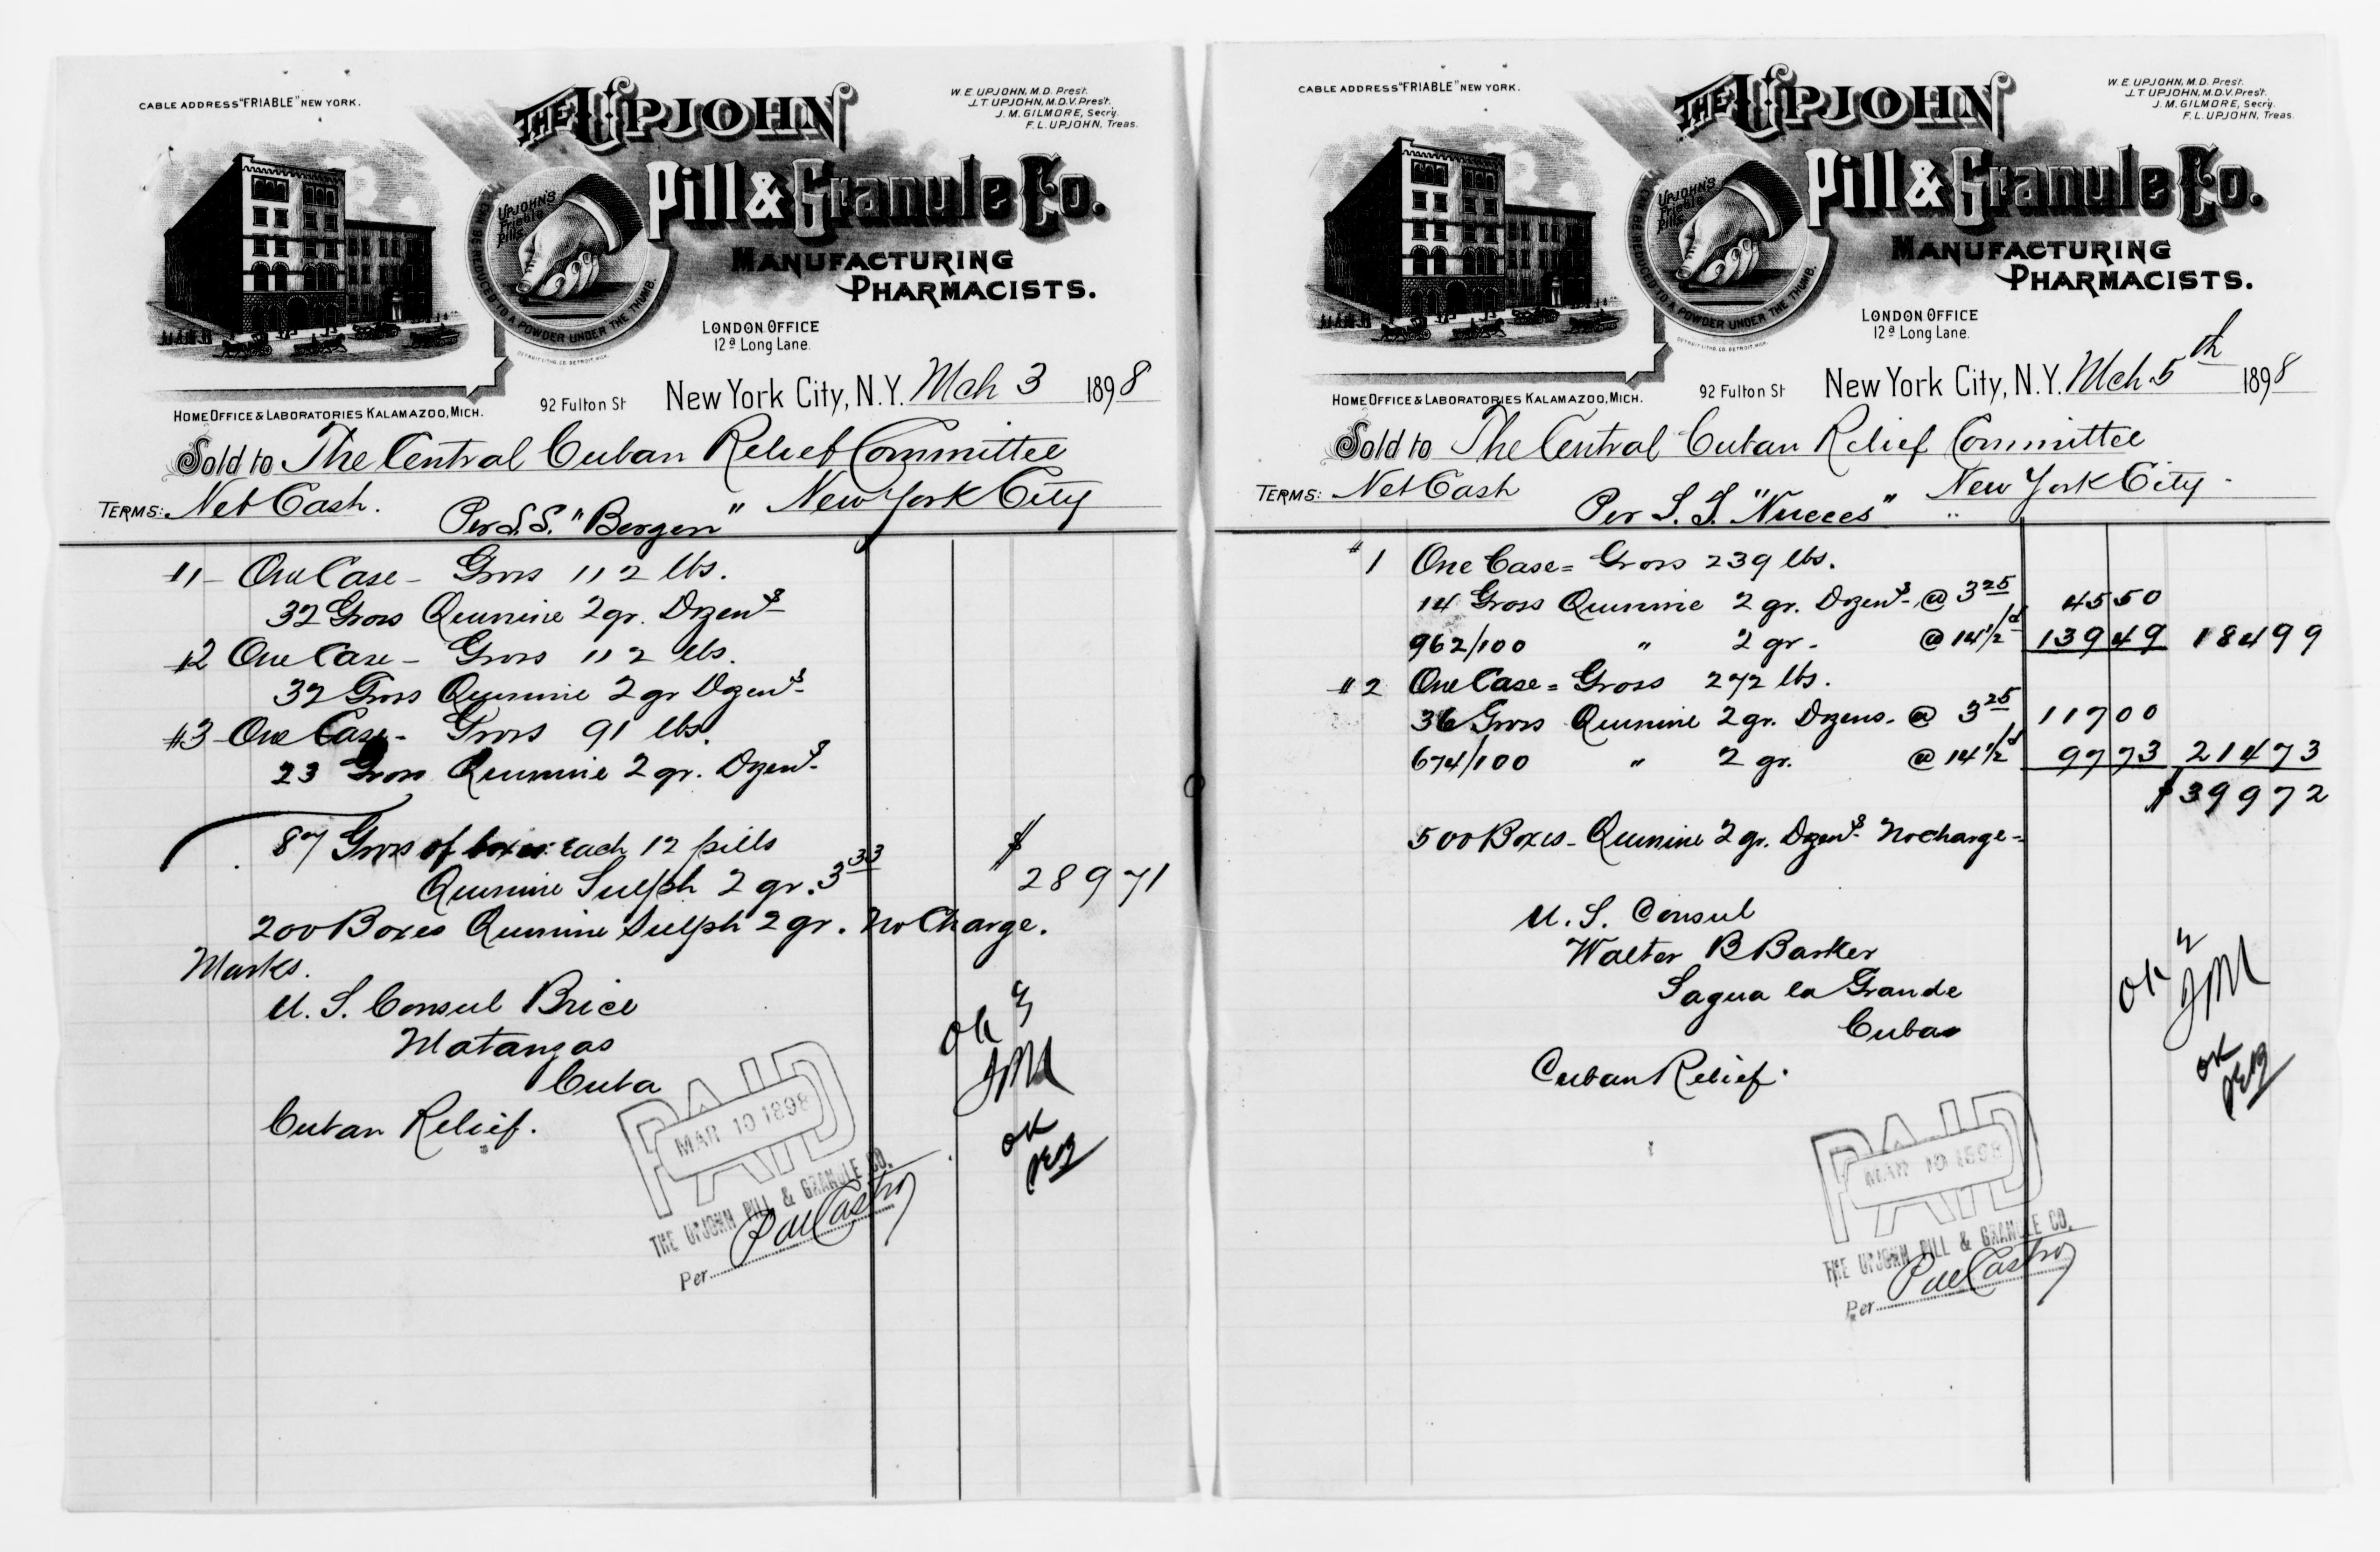 CABLE ADDRESS "FRIABLE" NEW YORK.
W. E. UPJOHN, M.D. Prest.
J. T. UPJOHN, M.D. V. Prest.
J. M. GILMORE, Secry.
F. L. UPJOHN, Treas.
THE UPJOHN
Pill & Granule Co.
MANUFACTURING
PHARMACISTS.
UPJOHN'S
Friable
Pills
CAN BE REDUCED TO A POWDER UNDER THE THUMB.
DETROIT LITHO. CO. DETROIT, MICH.
LONDON OFFICE
12a Long Lane.
HOME OFFICE & LABORATORIES KALAMAZOO, MICH.
92 Fulton St New York City, N.Y. Mch 3 1898
Sold to The Central Cuban Relief Committee
TERMS: Net Cash. Per S.S. "Bergen" New York City
#1 - One Case - Gross 112 lbs.
32 Gross Quinine 2 gr. Dozens
#2 One Case - Gross 112 lbs.
32 Gross Quinine 2 gr Dozens
#3 - One Case - Gross 91 lbs.
23 Gross Quinine 2 gr. Dozens
87 Gross of boxes each 12 pills $
Quinine Sulph 2 gr. 3 33 289 71
200 Boxes Quinine Sulph 2 gr. No Charge.
Marks.
U. S. Consul Brice
Matanzas
Cuba
Cuban Relief.
OK
OK
PAID
MAR 10 1898
THE UPJOHN PILL & GRANULE CO.
Per
CABLE ADDRESS "FRIABLE" NEW YORK.
W. E. UPJOHN, M.D. Prest.
J. T. UPJOHN, M.D. V. Prest.
J. M. GILMORE, Secry.
F. L. UPJOHN, Treas.
THE UPJOHN
Pill & Granule Co.
MANUFACTURING
PHARMACISTS.
UPJOHN'S
Friable
Pills
CAN BE REDUCED TO A POWDER UNDER THE THUMB.
DETROIT LITHO. CO. DETROIT, MICH.
LONDON OFFICE
12a Long Lane.
HOME OFFICE & LABORATORIES KALAMAZOO, MICH.
92 Fulton St New York City, N.Y. Mch 5th 1898
Sold to The Central Cuban Relief Committee
TERMS: Net Cash Per S. S. "Nueces" New York City -
#1 One Case = Gross 239 lbs.
14 Gross Quinine 2 gr. Dozens - @ 3 25 45 50
962/100 " 2 gr. @ 14 1/2 d 139 49 184 99
#2 One Case = Gross 272 lbs.
36 Gross Quinine 2 gr. Dozens - @ 3 25 117 00
674/100 " 2 gr. @ 14 1/2 d 97 73 214 73
$399 72
500 Boxes - Quinine 2 gr. Dozens - No charge -
U. S. Consul
Walter B Barker
Sagua la Grande
Cuba
Cuban Relief.
OK
OK
PAID
MAR 10 1898
THE UPJOHN PILL & GRANULE CO.
Per